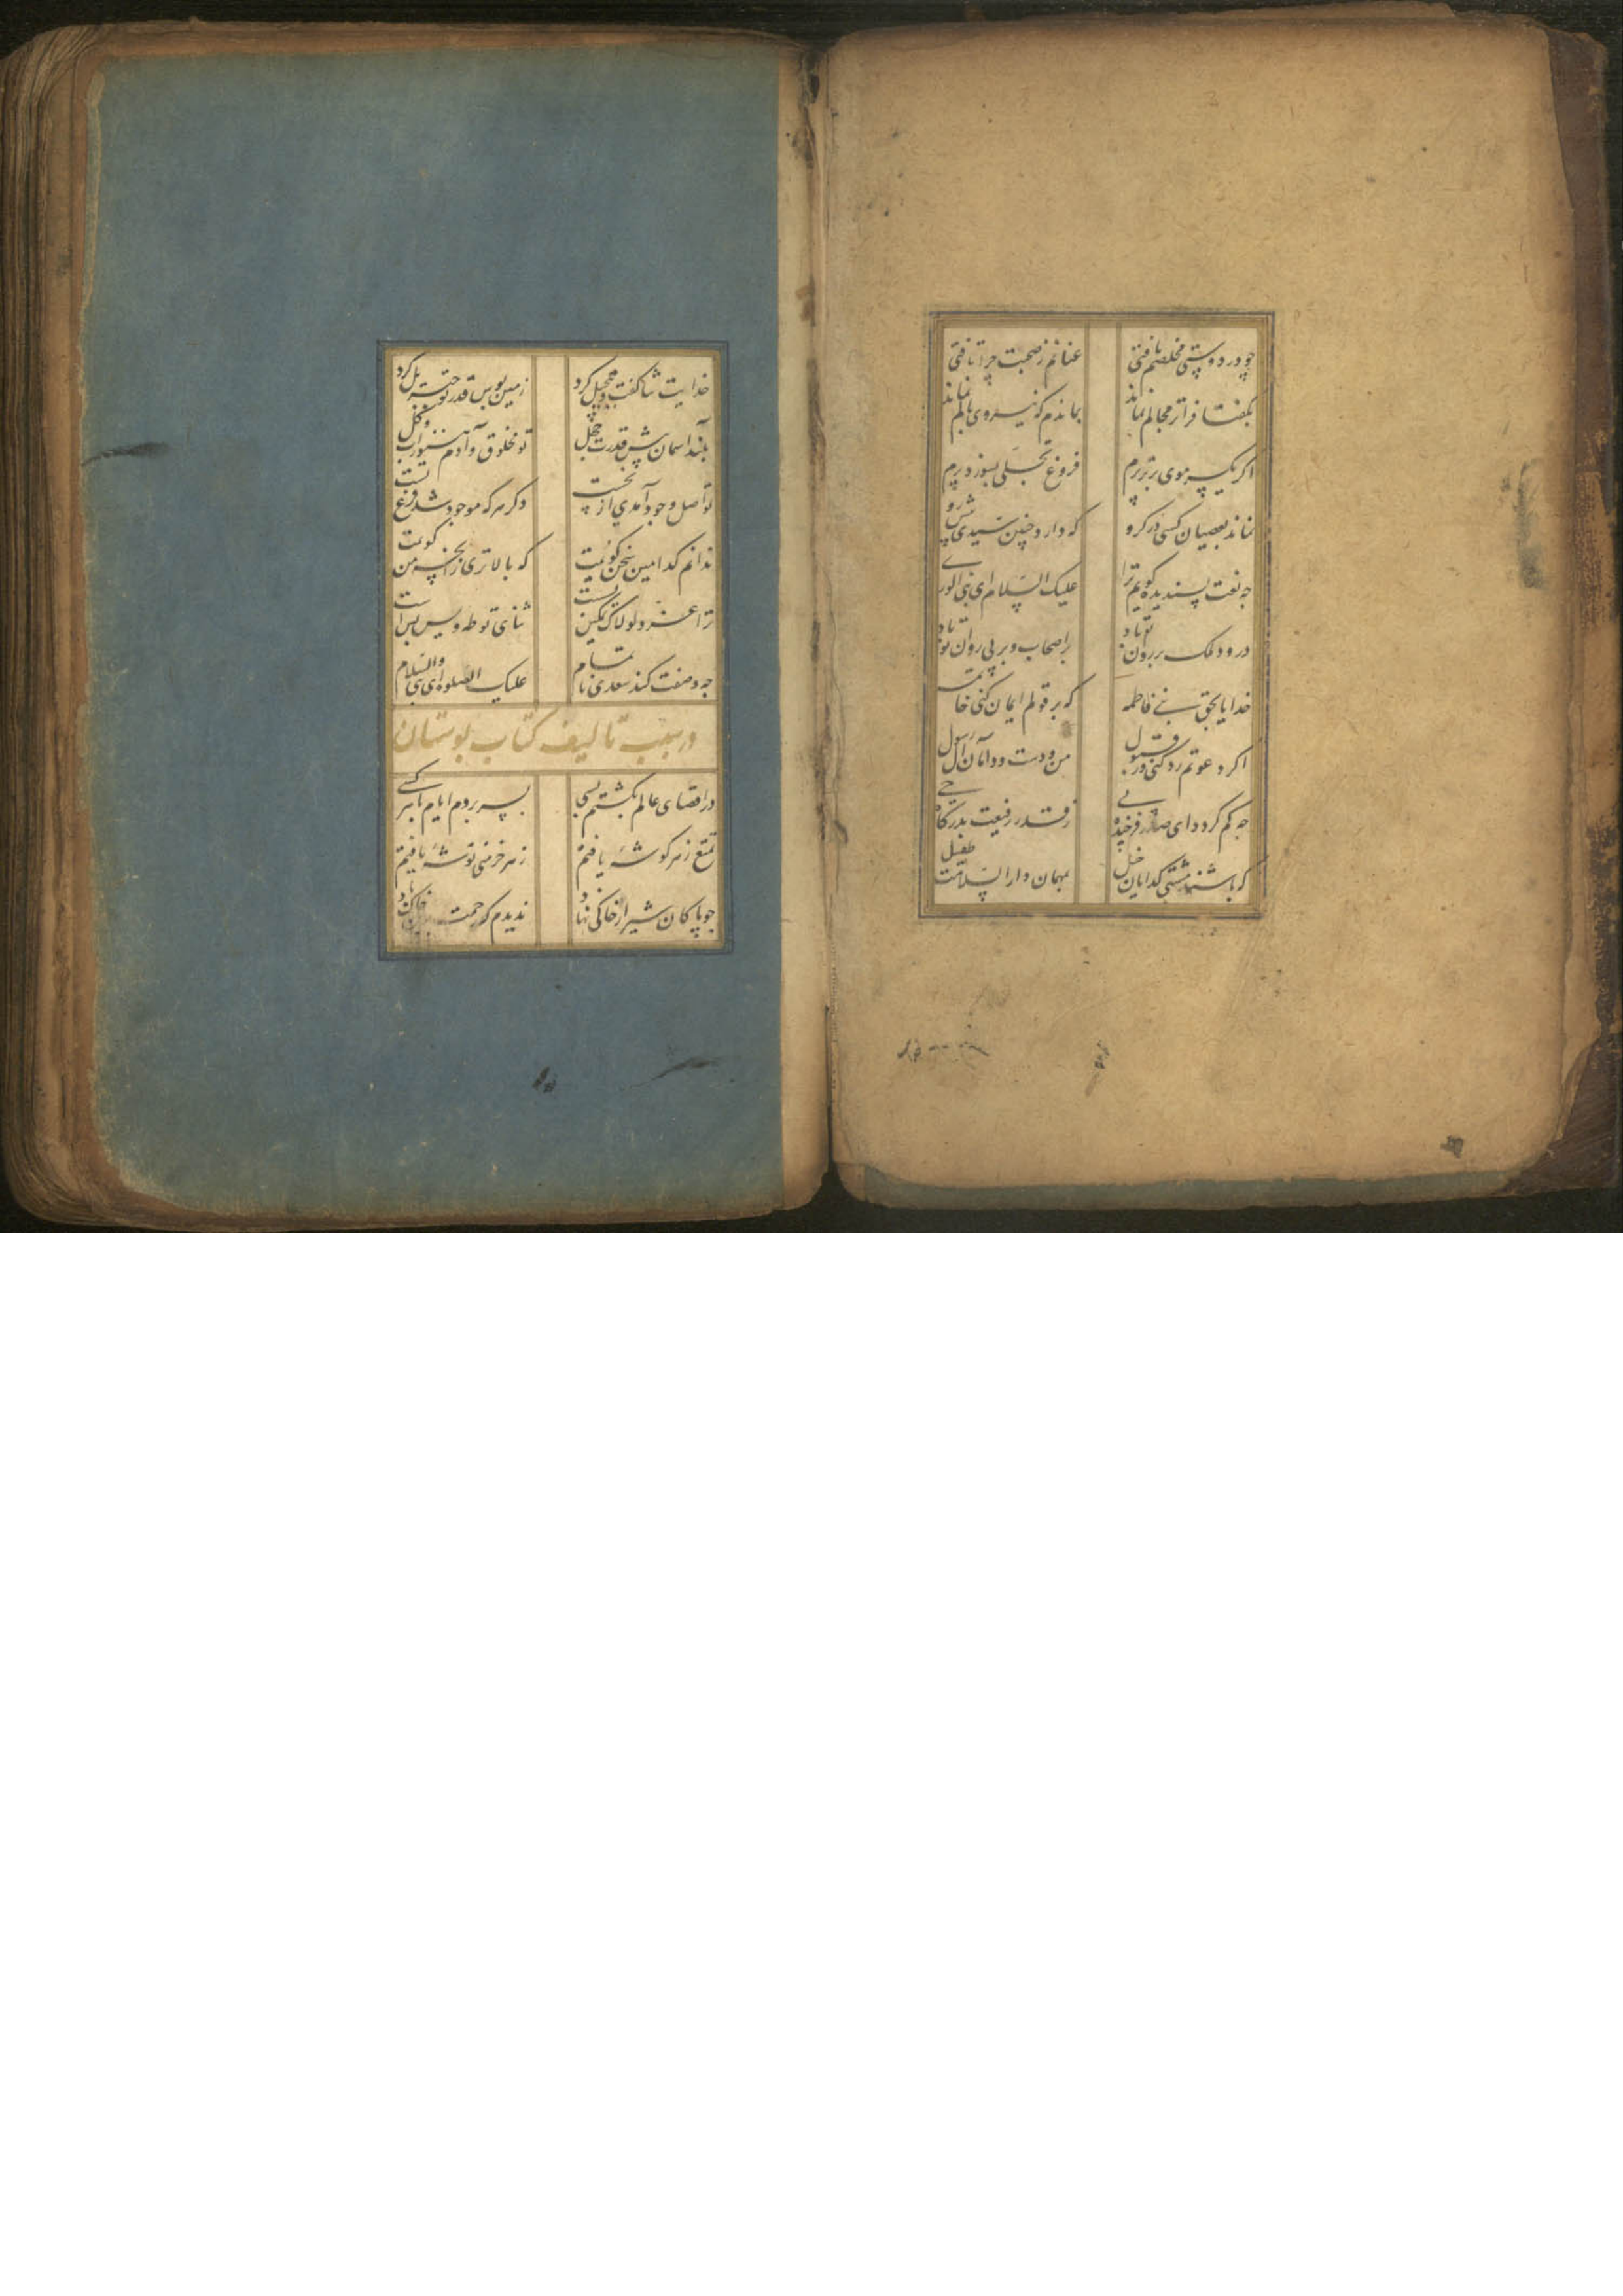 چو در دوستی مخلصم یافتی عنانم ز صحبت چرا تافتی
بکفتا فراتر مجالم نماند بماندم که نیروی بالم نماند
اکر یک سر موی برتر پرم فروغ تجلی بسوزد پرم
نماند بعصیان کسی در کرو که دارد چنین سیدی پیش رو
چه نعت پسندیده کویم ترا علیک السلام ای نبی الوری
درود ملک بر روان تو باد بر اصحاب و بر پی روان تو باد
خدایا بحق بنی فاطمه که بر قولم ایمان کنی خاتمه
اکر دعوتم رد کنی ور قبول من و دست و دامان آل رسول
چه کم کردد ای صدر فرخنده پی ز قدر رفیعت بدرکاه حی
که باشند مشتی کدایان خیل بمهمان دار السلامت طفیل
خدایت ثنا کفت و تبجیل کرد زمین بوس قدر تو جبریل کرد
بلند آسمان پیش قدرت خجل تو مخلوق و آدم هنوز آب و کل
تو اصل وجود آمدی از نخست دکر هرکه موجود شد فرع تست
ندانم کدامین سخن کویمت که بالاتری زانچه من کویمت
ترا عز لولاک تمکین بست ثنای تو طه و یس بس است
چه وصفت کند سعدی ناتمام علیک الصلوة ای نبی والسلام
در سبب تالیف کتاب بوستان
در اقصای عالم بکشتم بسی بسر بردم ایام با هر کسی
تمتع ز هر کوشهٔ یافتم ز هر خرمنی توشهٔ یافتم
چو پاکان شیراز خاکی نهاد ندیدم که رحمت برین خاک باد